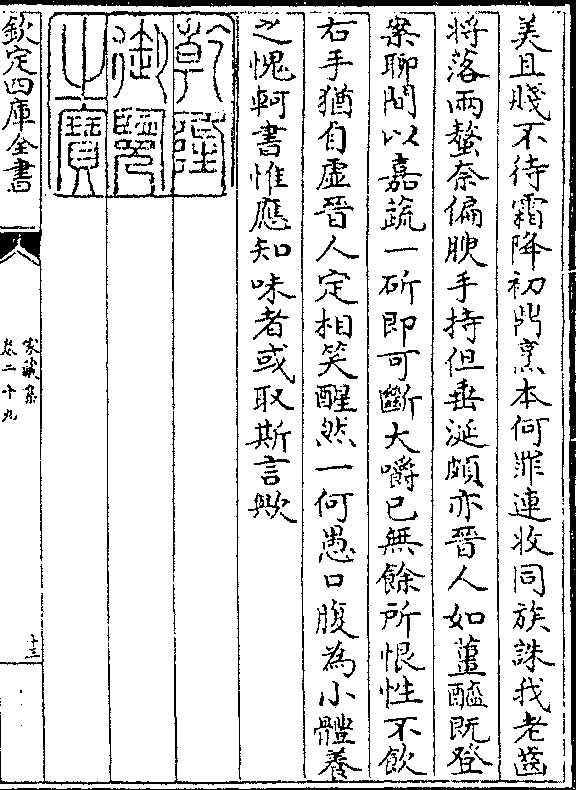 美且賤不待霜降初門烹本何罪連收同族誅我老齒
將落兩螯奈偏腴手持但垂涎頗亦晉人如薑醯既登
案聊間以嘉蔬一斫即可斷大嚼已無餘所恨性不飲
右手猶自虛晉人定相笑醒然一何愚口腹為小體養
之愧軻書惟應知味者或取斯言歟
乾隆御覽之寶
欽定四庫全書
家藏集
卷二十九
十三